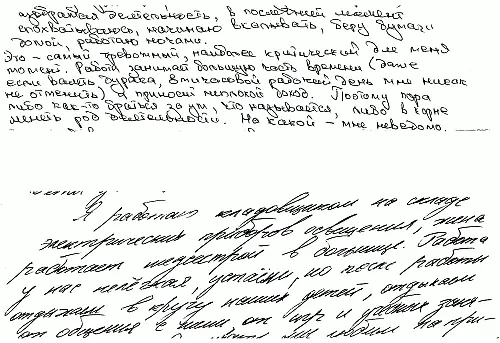 деятельность, в последний момент
спохватываюсь, начинаю вкалывать, беру бумаги
домой, работаю ночами.
Это – самый тревожный, наиболее критический для меня
момент. Работа занимает большую часть времени (даже
если валять дурака, 8 часовой рабочий день мне никак
не отменить) и приносит неплохой доход. Поэтому пора
либо как-то браться за ум, что называется, либо в корне
менять род деятельности. На какой – мне неведомо.
Я работаю кладовщиком на складе
электрических приборов освещения, жена
работает медсестрой в больнице. Работа
у нас нелёгкая, устаём, но после работы
отдыхаем в кругу наших детей, отдыхаем
от общения с ними от игр и